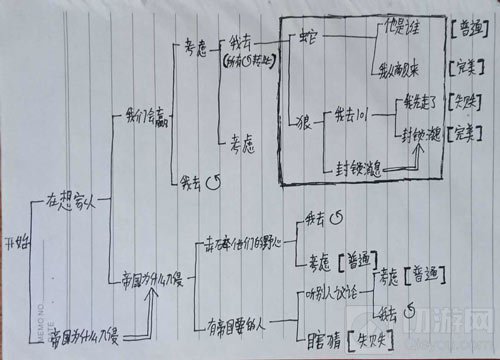 开始
在想家人
帝国为什么入侵
我们会赢
帝国为什么入侵
考虑
我去↺
我去
(所有↺转此)
考虑
蛇
他是谁 [普通]
我从南边来 [完美]
狼
我去101
我先走了 [失败]
封锁消息 [完美]
封锁消息
击碎他们的野心
我去↺
考虑 [普通]
有帝国要的人
听别人议论
考虑 [普通]
我去↺
瞎猜 [失败]
MEMO NO.
DATE
切游网